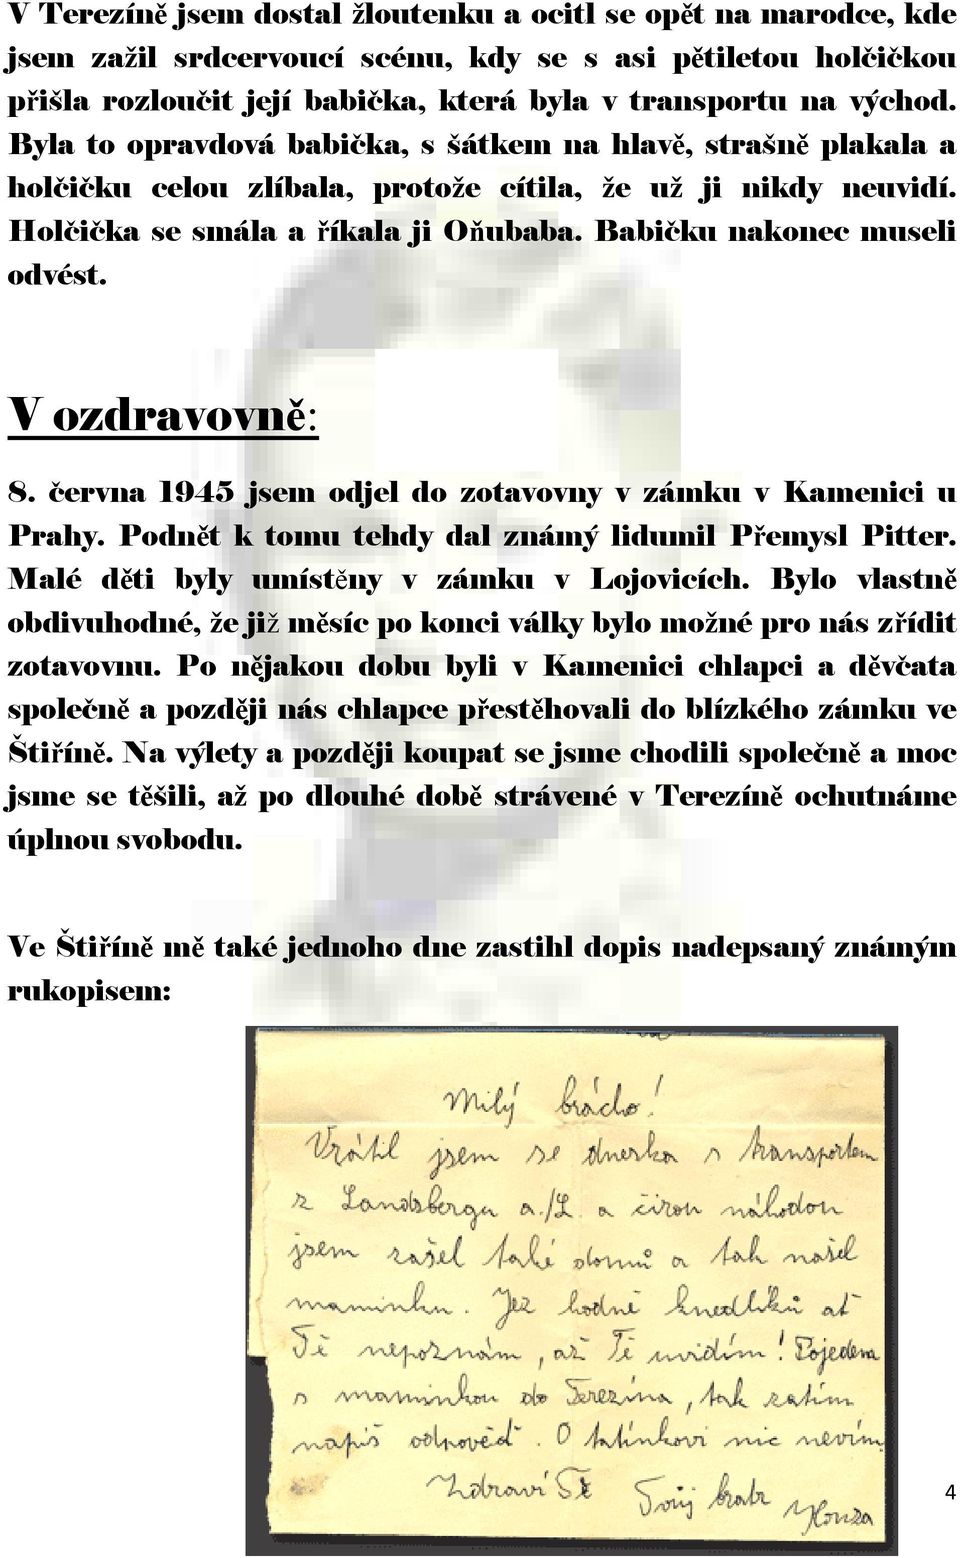 V Terezíně jsem dostal žloutenku a ocitl se opět na marodce, kde
jsem zažil srdcervoucí scénu, kdy se s asi pětiletou holčičkou
přišla rozloučit její babička, která byla v transportu na východ.
Byla to opravdová babička, s šátkem na hlavě, strašně plakala a
holčičku celou zlíbala, protože cítila, že už ji nikdy neuvidí.
Holčička se smála a říkala ji Oňubaba. Babičku nakonec museli
odvést.
V ozdravovně:
8. června 1945 jsem odjel do zotavovny v zámku v Kamenici u
Prahy. Podnět k tomu tehdy dal známý lidumil Přemysl Pitter.
Malé děti byly umístěny v zámku v Lojovicích. Bylo vlastně
obdivuhodné, že již měsíc po konci války bylo možné pro nás zřídit
zotavovnu. Po nějakou dobu byli v Kamenici chlapci a děvčata
společně a později nás chlapce přestěhovali do blízkého zámku ve
Štiříně. Na výlety a později koupat se jsme chodili společně a moc
jsme se těšili, až po dlouhé době strávené v Terezíně ochutnáme
úplnou svobodu.
Ve Štiříně mě také jednoho dne zastihl dopis nadepsaný známým
rukopisem:
Milý brácho!
Vrátil jsem se dneska s transportem
z Landsbergu a./L. a čirou náhodou
jsem zašel také domů a tak našel
maminku. Jez hodně knedlíků ať
Tě nepoznám, až Tě uvidím! Pojedem
s maminkou do Terezína, tak zatím
napiš odpověď. O tatínkovi nic nevím.
Zdraví Tě Tvůj bratr Honza
4